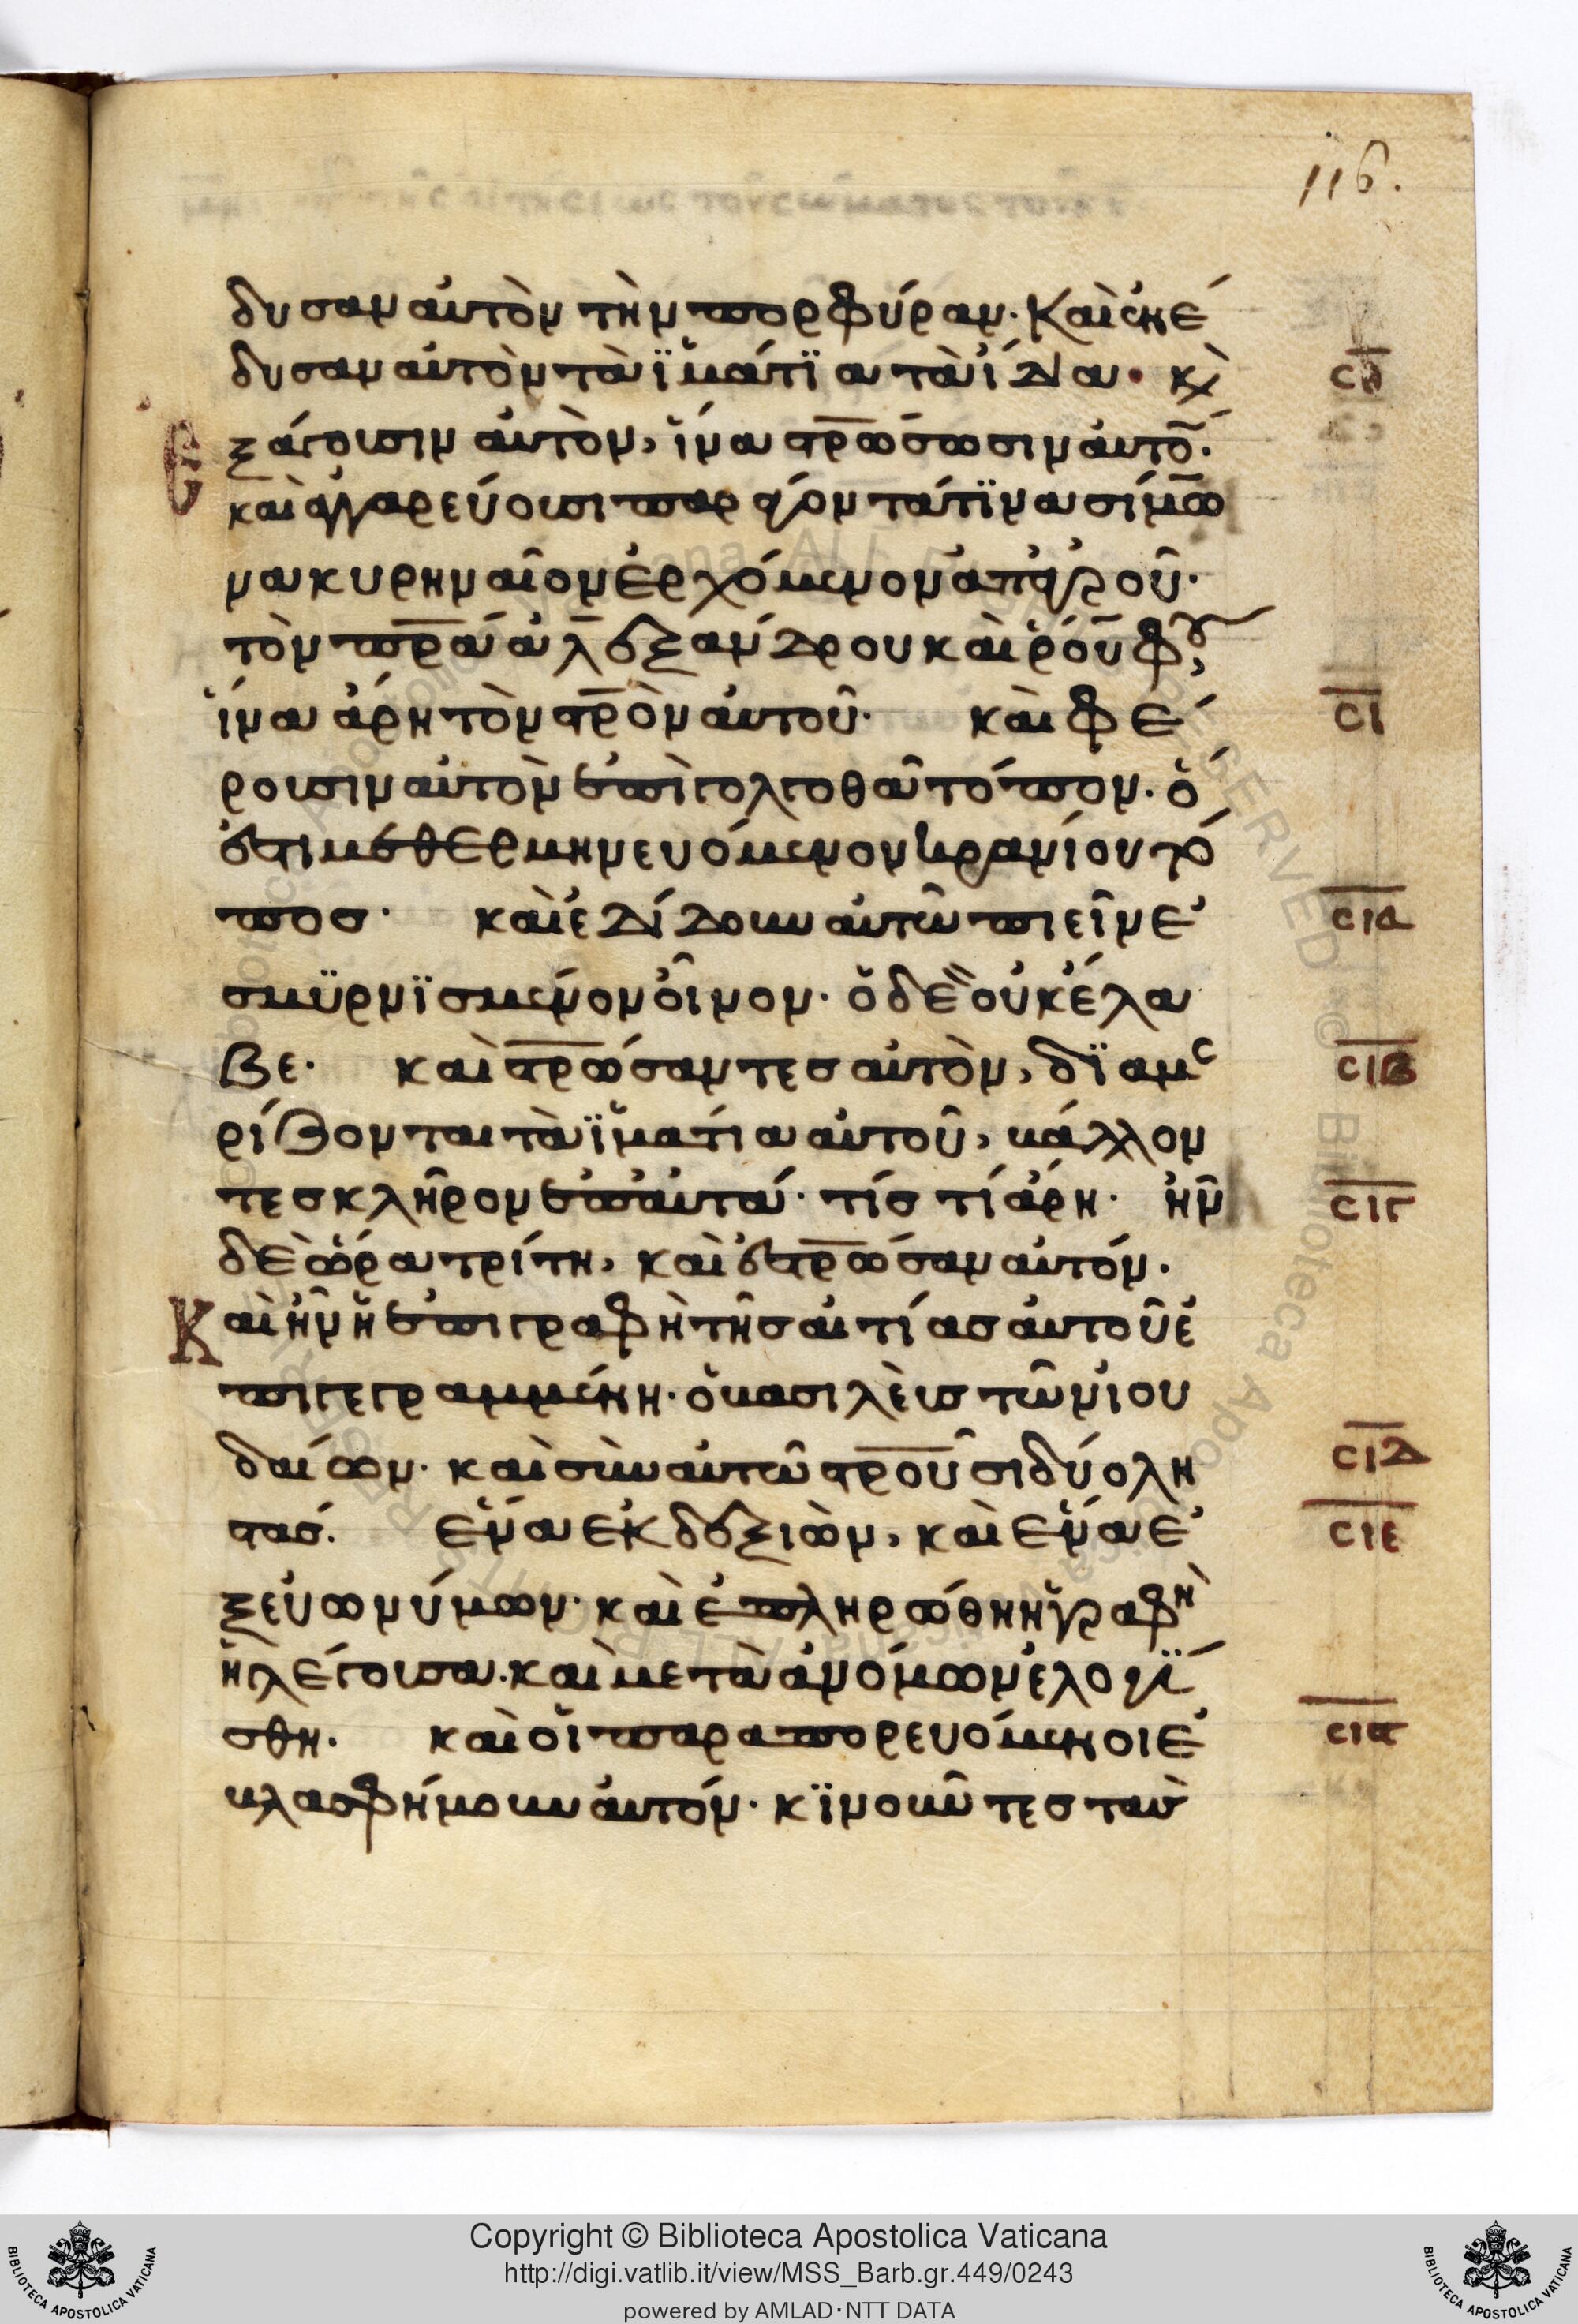 116.
δυσαν αὐτὸν τὴν πορφύραν. Καὶ ἐνέ
δυσαν αὐτὸν τὰ ϊμάτϊα τὰ ἴδια. κ̀
ξάγουσιν αὐτὸν, ἵνα στ̅ρ̅ώσωσιν αὐτό̅.
Ε
καὶ ἀγγαρεύουσι παράγοντά τϊνα σίμω̅
να κυρηναῖον ἐρχόμενον ἀπ' ἀγροῦ.
τὸν π̅ρ̅α ἀλεξάνδρου καὶ ῥούφου,
ἵνα ἄρη τὸν στ̅ρ̅ὸν αὐτοῦ. καὶ φέ
σι
ρουσιν αὐτὸν ἐπὶ γολγοθᾶ τόπον. ὅ
ἐστι μεθερμηνευόμενον κρανίου τό
πος. καὶ ἐδίδουν αὐτῶ πιεῖν ἐ
σια
σμϋρνϊσμένον οἶνον. ὁ δὲ οὐκ ἔλα
βε. καὶ στ̅ρ̅ώσαντες αὐτὸν, δϊαμε
σιβ
ρίζονται τὰ ϊμάτια αὐτοῦ, βάλλον
τες κλῆρον ἐπ' αὐτά. τίς τί ἄρη. ἦν
σιγ
δὲ ὥρα τρίτη, καὶ ἐστ̅ρ̅ώσαν αὐτόν.
Καὶ ἦν ἡ ἐπιγραφὴ τῆς αἰτίας αὐτοῦ ἐ
πιγεγραμμένη. ὁ βασιλεὺς τῶν ἰου
δαίων. καὶ σὺν αὐτῶ στ̅ρ̅οῦσι δύο λη
σιδ
στάς. ἕνα ἐκ δεξιῶν, καὶ ἕνα ἐ
σιε
ξευωνύμων. καὶ ἐπληρώθη ἡ γραφὴ
ἡ λέγουσα. καὶ μετὰ ἀνόμων ἐλογΐ
σθη. καὶ οἱ παραπορευόμενοι ἐ
βλασφήμουν αὐτόν. κϊνοῦντες τὰς
Copyright © Biblioteca Apostolica Vaticana
http://digi.vatlib.it/view/MSS_Barb.gr.449/0243
powered by AMLAD·NTT DATA
BIBLIOTECA APOSTOLICA VATICANA
BIBLIOTECA APOSTOLICA VATICANA